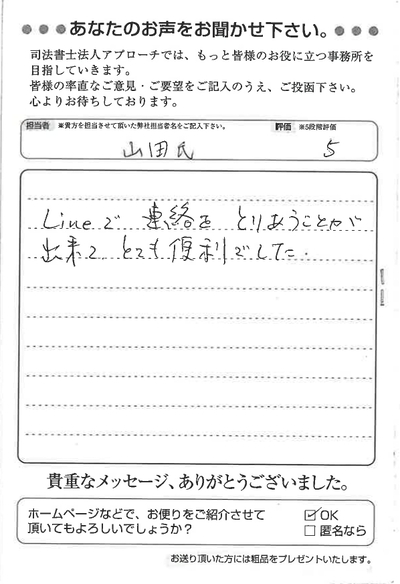 あなたのお声をお聞かせ下さい。
司法書士法人アプローチでは、もっと皆様のお役に立つ事務所を
目指していきます。
皆様の率直なご意見・ご要望をご記入のうえ、ご投函下さい。
心よりお待ちしております。
担当者 ※貴方を担当させて頂いた弊社担当者名をご記入下さい。 評価 ※5段階評価
山田氏 5
Lineで 連絡を とりあうことが
出来て とても便利でした.
貴重なメッセージ、ありがとうございました。
ホームページなどで、お便りをご紹介させて
頂いてもよろしいでしょうか?
☑OK
□匿名なら
お送り頂いた方には粗品をプレゼントいたします。